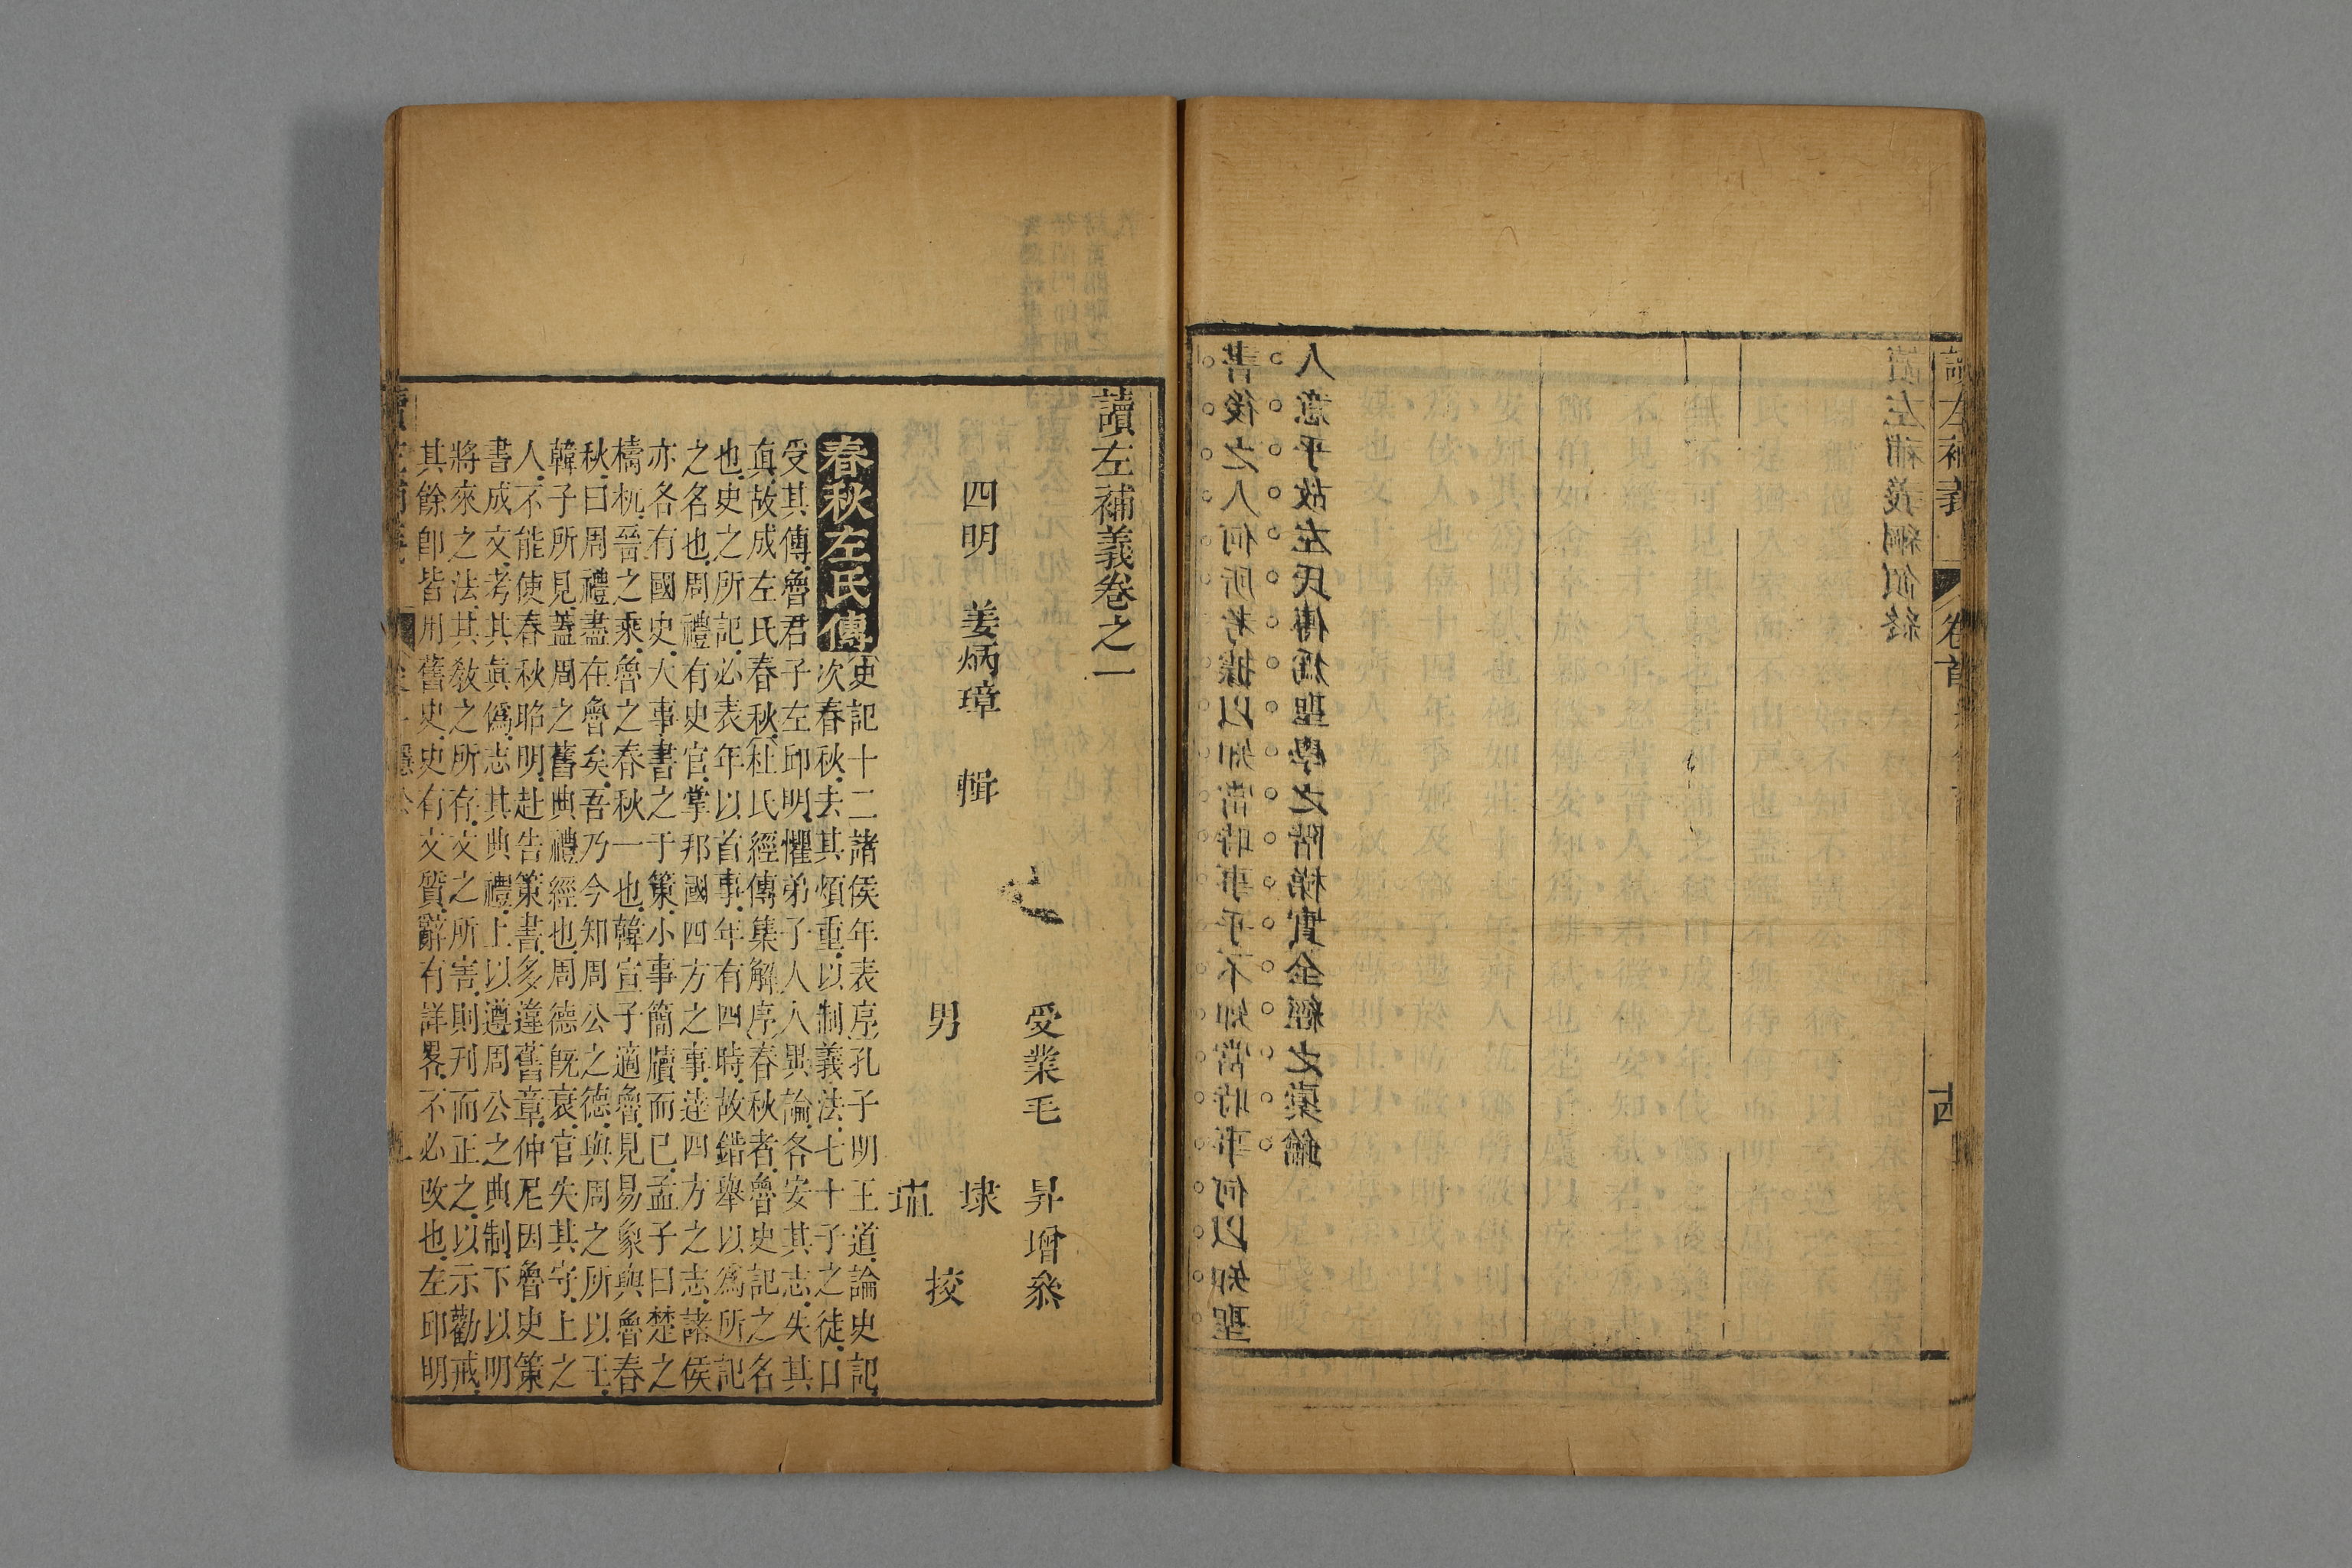 書後之人何所考據以知當時事乎不知當時事何以知聖
人意乎故左氏傳爲聖學之階梯實全經之橐鑰
讀左補義綱領終
讀左補義 卷首 十四
讀左補義卷之一
受業毛 昇增叅
四明 姜炳璋 輯
男 埭 挍
春秋左氏傳
史記十二諸侯年表序孔子明王道論史記
次春秋去其煩重以制義法七十子之徒口
受其傳魯君子左邱明懼弟子人人異論各安其志失其
真故成左氏春秋杜氏經傳集解序春秋者魯史記之名
也史之所記必表年以首事年有四時故錯舉以爲所記
之名也周禮有史官掌邦國四方之事達四方之志諸侯
亦各有國史大事書之于策小事簡牘而已孟子曰楚之
檮杌晉之乘魯之春秋一也韓宣子適魯見易象與魯春
秋曰周禮盡在魯矣吾乃今知周公之德與周之所以王
韓子所見蓋周之舊典禮經也周德旣衰官失其守上之
人不能使春秋昭明赴告策書多違舊章仲尼因魯史策
書成文考其眞僞志其典禮上以遵周公之典制下以明
將來之法其敎之所存文之所害則刋而正之以示勸戒
其餘卽皆用舊史史有文質辭有詳畧不必改也左邱明